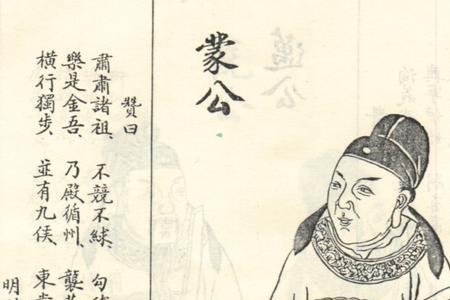 蒙公
贊曰
肅肅諸祖、不競不絿、勾
樂是金吾、乃殿循州、襲
橫行獨步、並有九侯、東
明